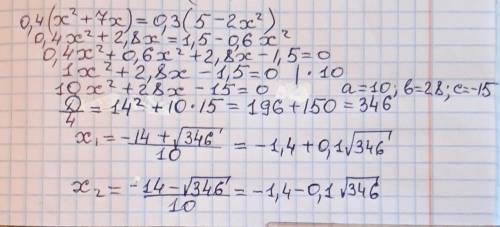 0,4(x²+7x)=0,3(5-2x²)
0,4x²+2,8x=1,5-0,6x²
0,4x²+0,6x²+2,8x-1,5=0
1x²+2,8x-1,5=0 |·10
10x²+28x-15=0 a=10; b=28; c=-15
D/4=14²+10·15=196+150=346
x₁=(-14+√346)/10=-1,4+0,1√346
x₂=(-14-√346)/10=-1,4-0,1√346